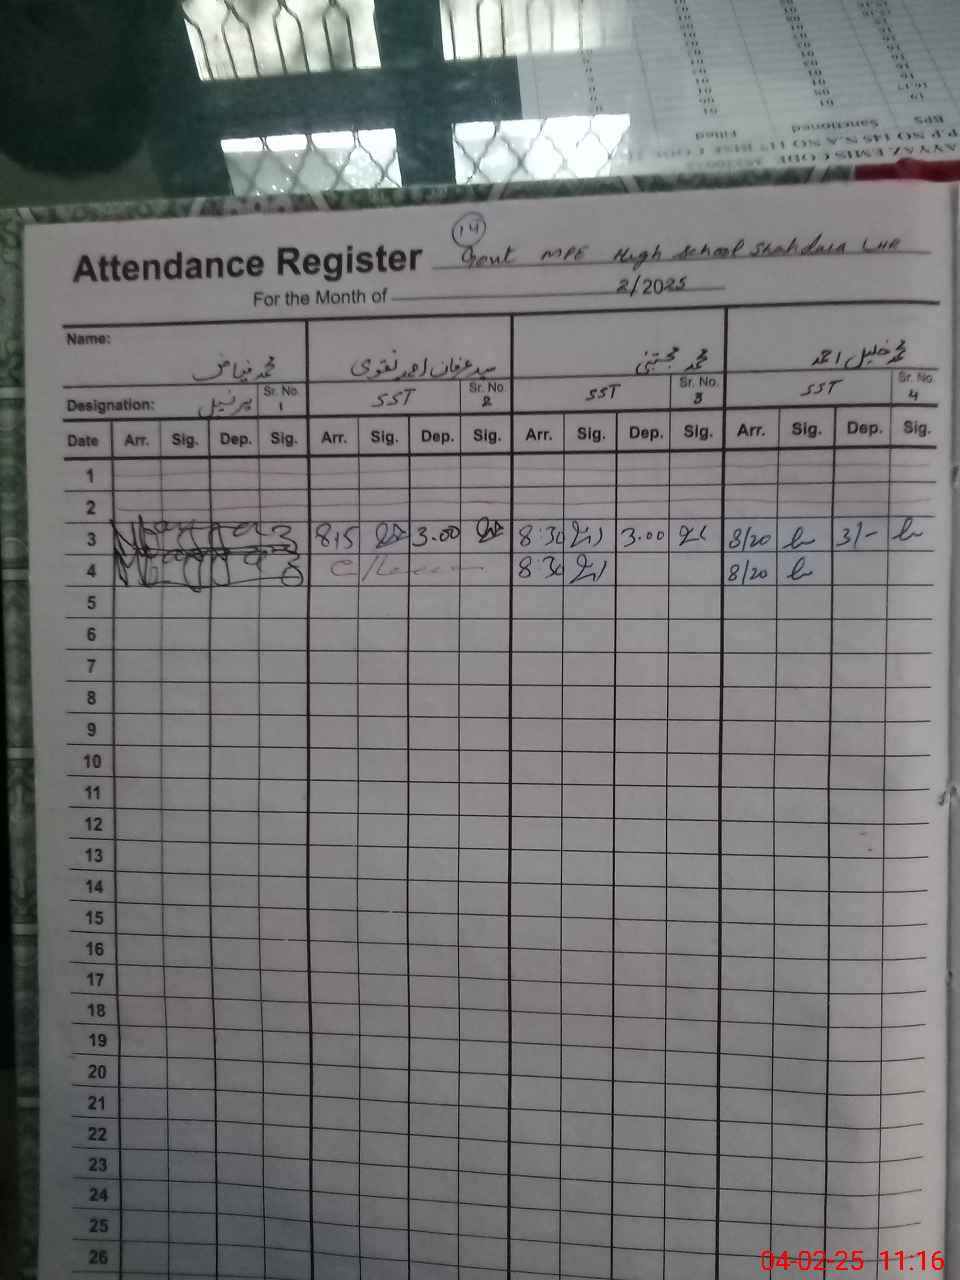 14
Attendance Register Govt MPE High School Shahdara LHR
For the Month of 2/2025
Name: محمد فیاض سید عرفان احمد نقوی محمد مجتبیٰ محمد خلیل احمد
Designation: پرنسپل Sr. No. 1 SST Sr. No. 2 SST Sr. No. 3 SST Sr. No. 4
Date Arr. Sig. Dep. Sig. Arr. Sig. Dep. Sig. Arr. Sig. Dep. Sig. Arr. Sig. Dep. Sig.
1
2
3 815 3.00 8:30 3.00 8/20 3/-
4 C/Leave 8:30 8/20
5
6
7
8
9
10
11
12
13
14
15
16
17
18
19
20
21
22
23
24
25
26
04-02-25 11:16
BPS Sanctioned Filled